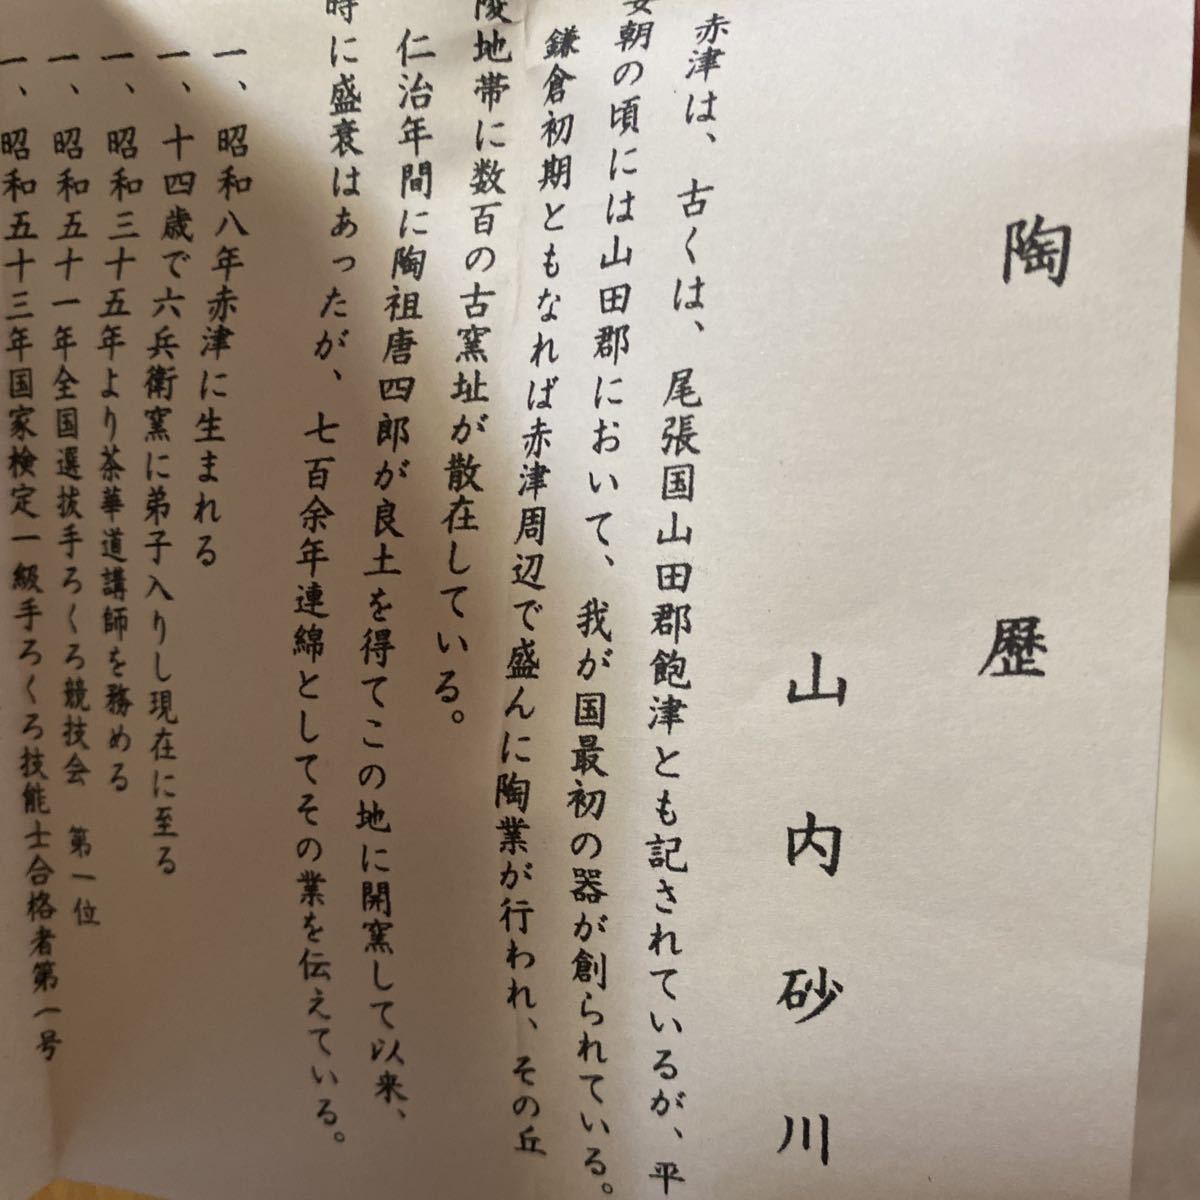 陶歴
山内砂川
赤津は、古くは、尾張国山田郡飽津とも記されているが、平
安朝の頃には山田郡において、我が国最初の器が創られている。
鎌倉初期ともなれば赤津周辺で盛んに陶業が行われ、その丘
陵地帯に数百の古窯址が散在している。
仁治年間に陶祖唐四郎が良土を得てこの地に開窯して以来、
時に盛衰はあったが、七百余年連綿としてその業を伝えている。
一、昭和八年赤津に生まれる
一、十四歳で六兵衛窯に弟子入りし現在に至る
一、昭和三十五年より茶華道講師を務める
一、昭和五十一年全国選抜手ろくろ競技会 第一位
一、昭和五十三年国家検定一級手ろくろ技能士合格者第一号